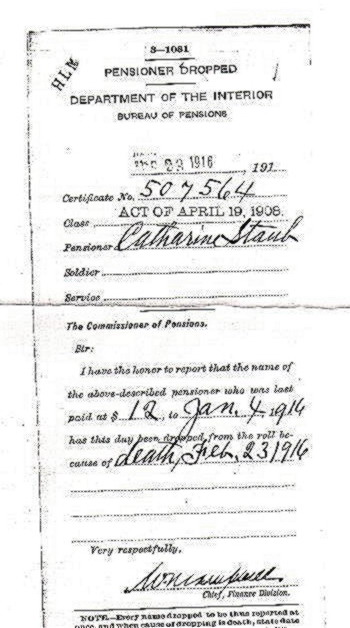 3—1081
HLM
PENSIONER DROPPED
DEPARTMENT OF THE INTERIOR
BUREAU OF PENSIONS
23 1916 , 191
Certificate No. 507564
Class ACT OF APRIL 19, 1908.
Pensioner Catharine Staub
Soldier
Service
The Commissioner of Pensions.
Sir:
I have the honor to report that the name of
the above-described pensioner who was last
paid at $ 12, to Jan. 4, 1916
has this day been dropped from the roll be-
cause of death, Feb. 23 1916
Very respectfully,
Chief, Finance Division.
NOTE.—Every name dropped to be thus reported at
once, and when cause of dropping is death, state date